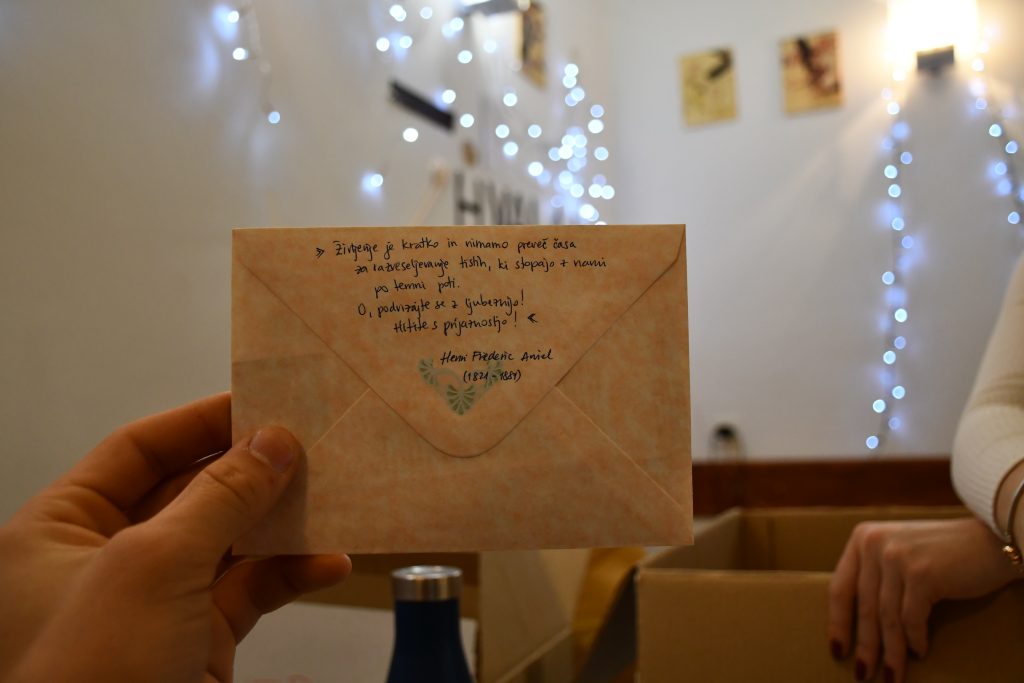 » Življenje je kratko in nimamo preveč časa
za razveseljevanje tistih, ki stopajo z nami
po temni poti.
O, podvizajte se z ljubeznijo!
Hitite s prijaznostjo! «
Henri Frederic Amiel
(1821 - 1881)